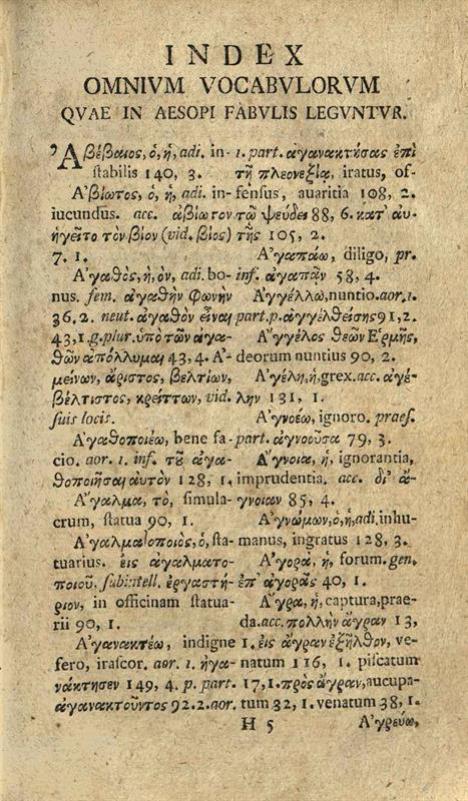 INDEX
OMNIVM VOCABVLORVM
QVAE IN AESOPI FABVLIS LEGVNTVR.
Ἀβέβαιος, ὁ, ἡ, adi. in-
stabilis 140, 3.
Ἀβίωτος, ὁ, ἡ, adi. in-
iucundus. acc. ἀβίωτον
ἡγεῖτο τὸν βίον (vid. βίος)
7. 1.
Ἀγαθὸς, ἡ, ὸν, adi. bo-
nus. fem. ἀγαθὴν φωνὴν
36. 2. neut. ἀγαθὸν εἶναι
43, 1. g. plur. ὑπὸ τῶν ἀγα-
θῶν ἀπόλλυμαι 43, 4. Ἀ-
μείνων, ἄριστος, βελτίων,
βέλτιστος, κρείττων, vid.
suis locis.
Ἀγαθοποιέω, bene fa-
cio. aor. 1. inf. τοῦ ἀγα-
θοποιῆσαι αὐτὸν 128, 1.
Ἄγαλμα, τὸ, simula-
crum, statua 90, 1.
Ἀγαλματοποιὸς, ὁ, sta-
tuarius. εἰς ἀγαλματο-
ποιοῦ. subintell. ἐργαστή-
ριον, in officinam statua-
rii 90, 1.
Ἀγανακτέω, indigne
fero, irascor. aor. 1. ἠγα-
νάκτησεν 149, 4. p. part.
ἀγανακτοῦντος 92. 2. aor.
1. part. ἀγανακτήσας ἐπὶ
τῇ πλεονεξίᾳ, iratus, of-
fensus, avaritia 108, 2.
τῷ ψεύδει 88, 6. κατ' αὐ-
τῆς 105, 2.
Ἀγαπάω, diligo, pr.
inf. ἀγαπᾷν 58, 4.
Ἀγγέλλω, nuntio. aor. 1.
part. p. ἀγγελθείσης 91, 2.
Ἄγγελος θεῶν Ἑρμῆς,
deorum nuntius 90, 2.
Ἀγέλη, ἡ, grex. acc. ἀγέ-
λην 131, 1.
Ἀγνοέω, ignoro. praes.
part. ἀγνοοῦσα 79, 3.
Ἄγνοια, ἡ, ignorantia,
imprudentia. acc. δι' ἄ-
γνοιαν 85, 4.
Ἀγνώμων, ὁ, ἡ, adi. inhu-
manus, ingratus 128, 3.
Ἀγορὰ, ἡ, forum. gen.
ἐπ' ἀγορᾶς 40, 1.
Ἄγρα, ἡ, captura, prae-
da. acc. πολλὴν ἄγραν 13,
1. εἰς ἄγραν ἐξῆλθον, ve-
natum 116, 1. piscatum
17, 1. πρὸς ἄγραν, aucupa-
tum 32, 1. venatum 38, 1.
H 5
Ἀγρεύω,